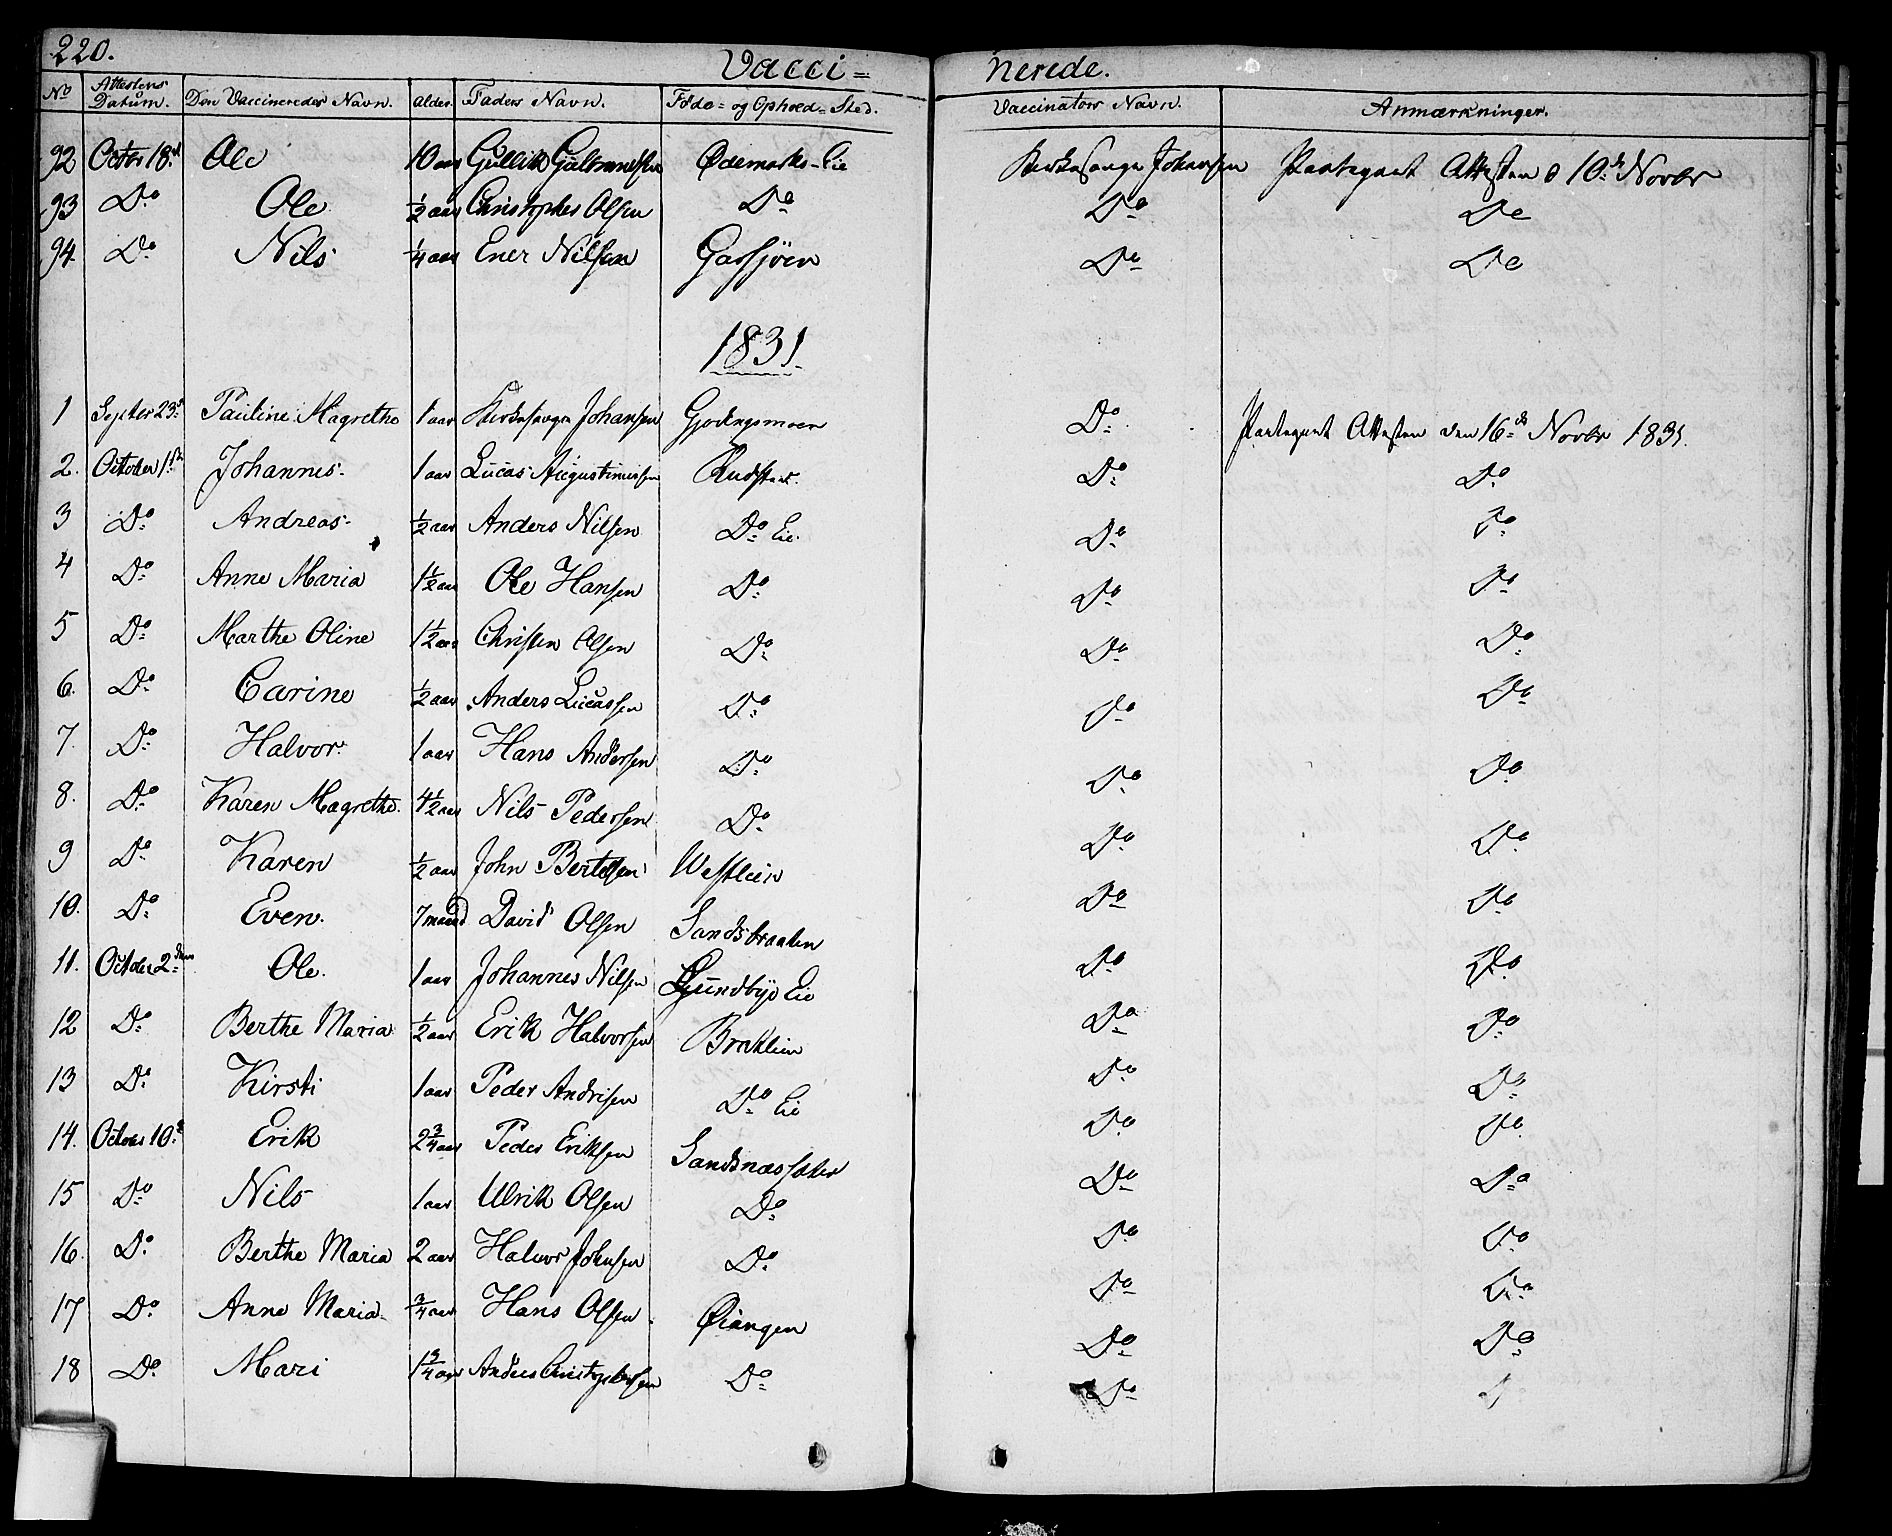 220. Vacci= nerede.
No Attestens Datum. Den Vaccineredes Navn. Alder. Faders Navn. Føde= og Ophold=Sted. Vaccinatörs Navn. Anmærkninger.
92 Octbr 18d Ole 10 aar Gullik Ødemarks-Eie Kirkesanger Johansen Attesten d 10de Novbr
93 Do Ole ½ aar Christopher Olsen Do Do Do
94 Do Nils ¼ aar Ener Nilsen Garsjöen Do Do
1831.
1 Septer 23d Pauline Magrethe 1 aar Kirkesanger Johansen Gjödingsmoen Do Attesten den 16de Novbr 1831.
2. October 1ste Johannes 1 aar Lucas Augustinussen Rudstad Do Do
3 Do Andreas ½ aar Anders Nilsen Do Eie Do Do
4 Do Anne Maria 1½ aar Ole Hansen Do Do Do
5 Do Marthe Oline 1½ aar Christen Olsen Do Do Do
6. Do Carine ½ aar Anders Lucassen Do Do Do
7. Do Halvor 1 aar Hans Andersen Do Do Do
8. Do Karen Magrethe 4½ aar Nils Pedersen Do Do Do
9 Do Karen ½ aar John Bertelsen Westlien Do Do
10. Do Even 7 maaned David Olsen Sandsbraaten Do Do
11. October 2den Ole 1 aar Johannes Nilsen Grundbye Eie Do Do
12 Do Berthe Maria ½ aar Erik Halvorsen Braklien Do Do
13 Do Kirsti 1 aar Peder Andrisen Do Eie Do Do
14. Octoer 10de Erik 2¾ aar Peder Eriksen Sandsnæssæter Do Do
15 Do Nils 1 aar Ulrik Olsen Do Do Do
16. Do Berthe Maria 2 aar Halvor Johnsen Do Do Do
17 Do Anne Maria ¾ aar Hans Olsen Øiangen Do Do
18 Do Mari 1¾ aar Anders Christophersen Do Do